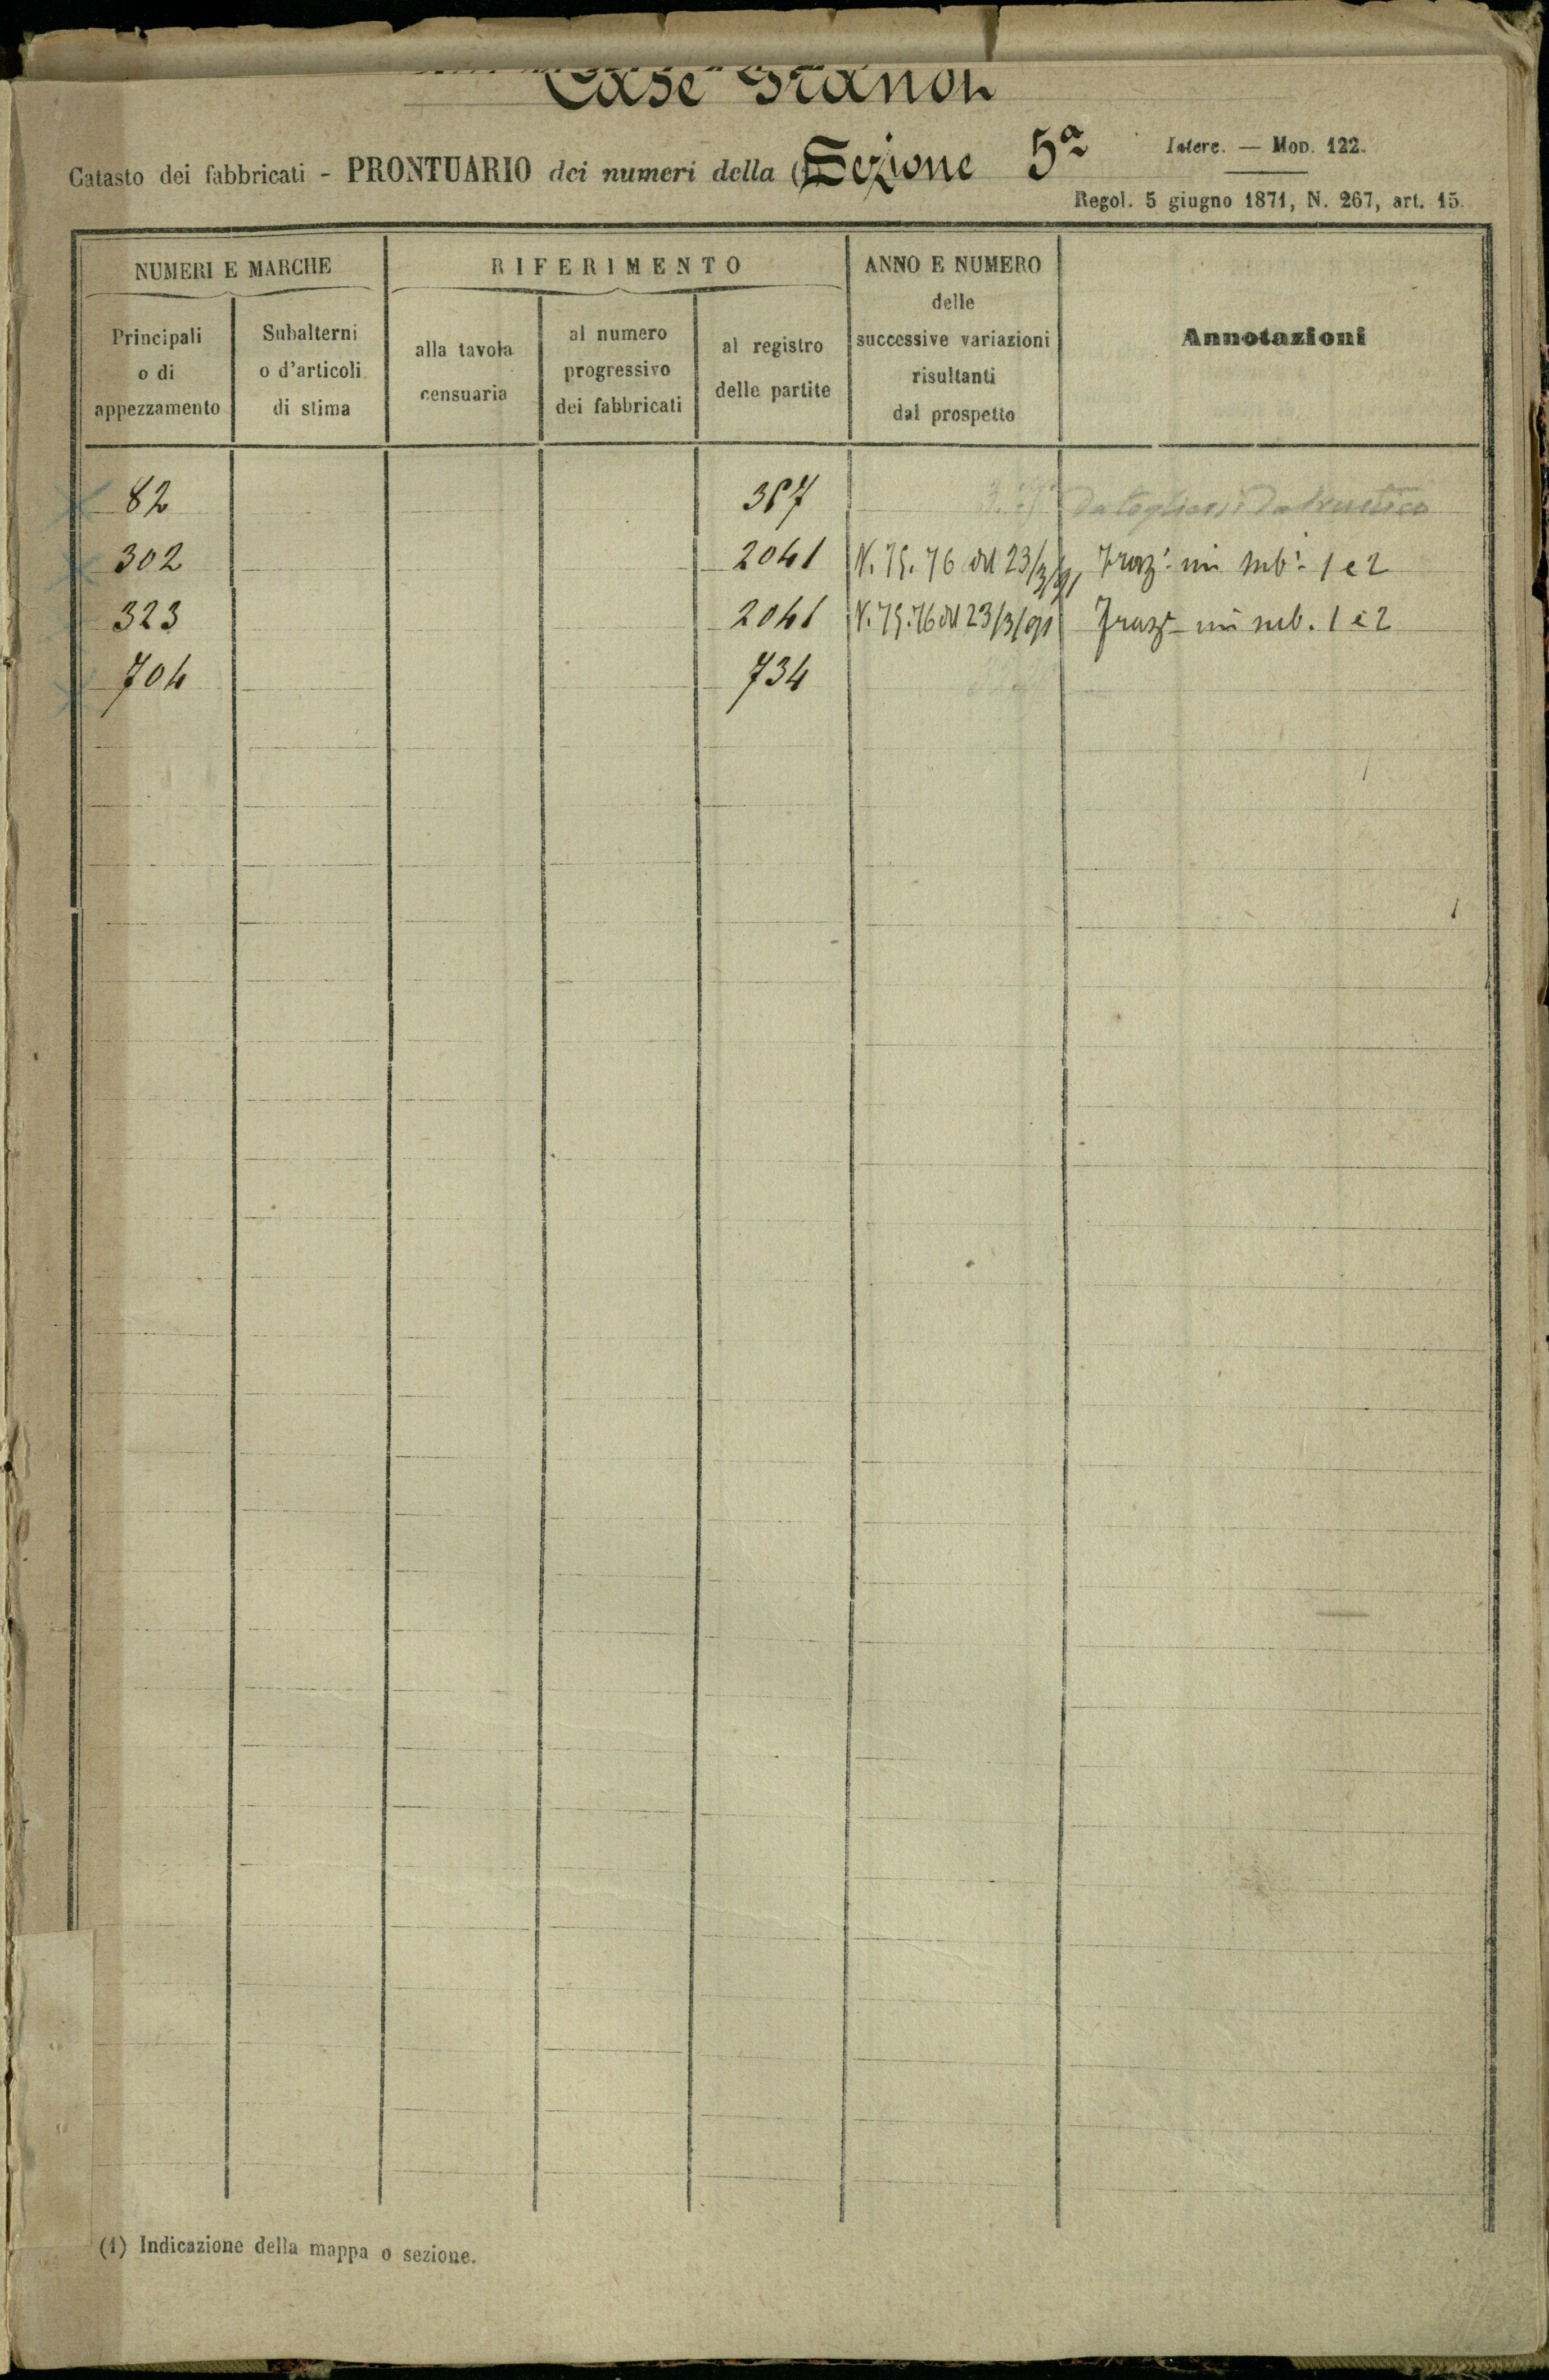 Case Grandi
Catasto dei fabbricati - PRONTUARIO dei numeri della (1) Sezione 5ª
Interc. — Mod. 122.
Regol. 5 giugno 1871, N. 267, art. 15.
NUMERI E MARCHE
RIFERIMENTO
ANNO E NUMERO
delle
successive variazioni
risultanti
dal prospetto
Annotazioni
Principali
o di
appezzamento
Subalterni
o d'articoli
di stima
alla tavola
censuaria
al numero
progressivo
dei fabbricati
al registro
delle partite
82 367 Da togliersi dal rustico
302 2041 N. 75. 76 del 23/3/91 Fraz. in sub. 1 e 2
323 2041 N. 75. 76 del 23/3/91 Fraz. in sub. 1 e 2
704 734
(1) Indicazione della mappa o sezione.